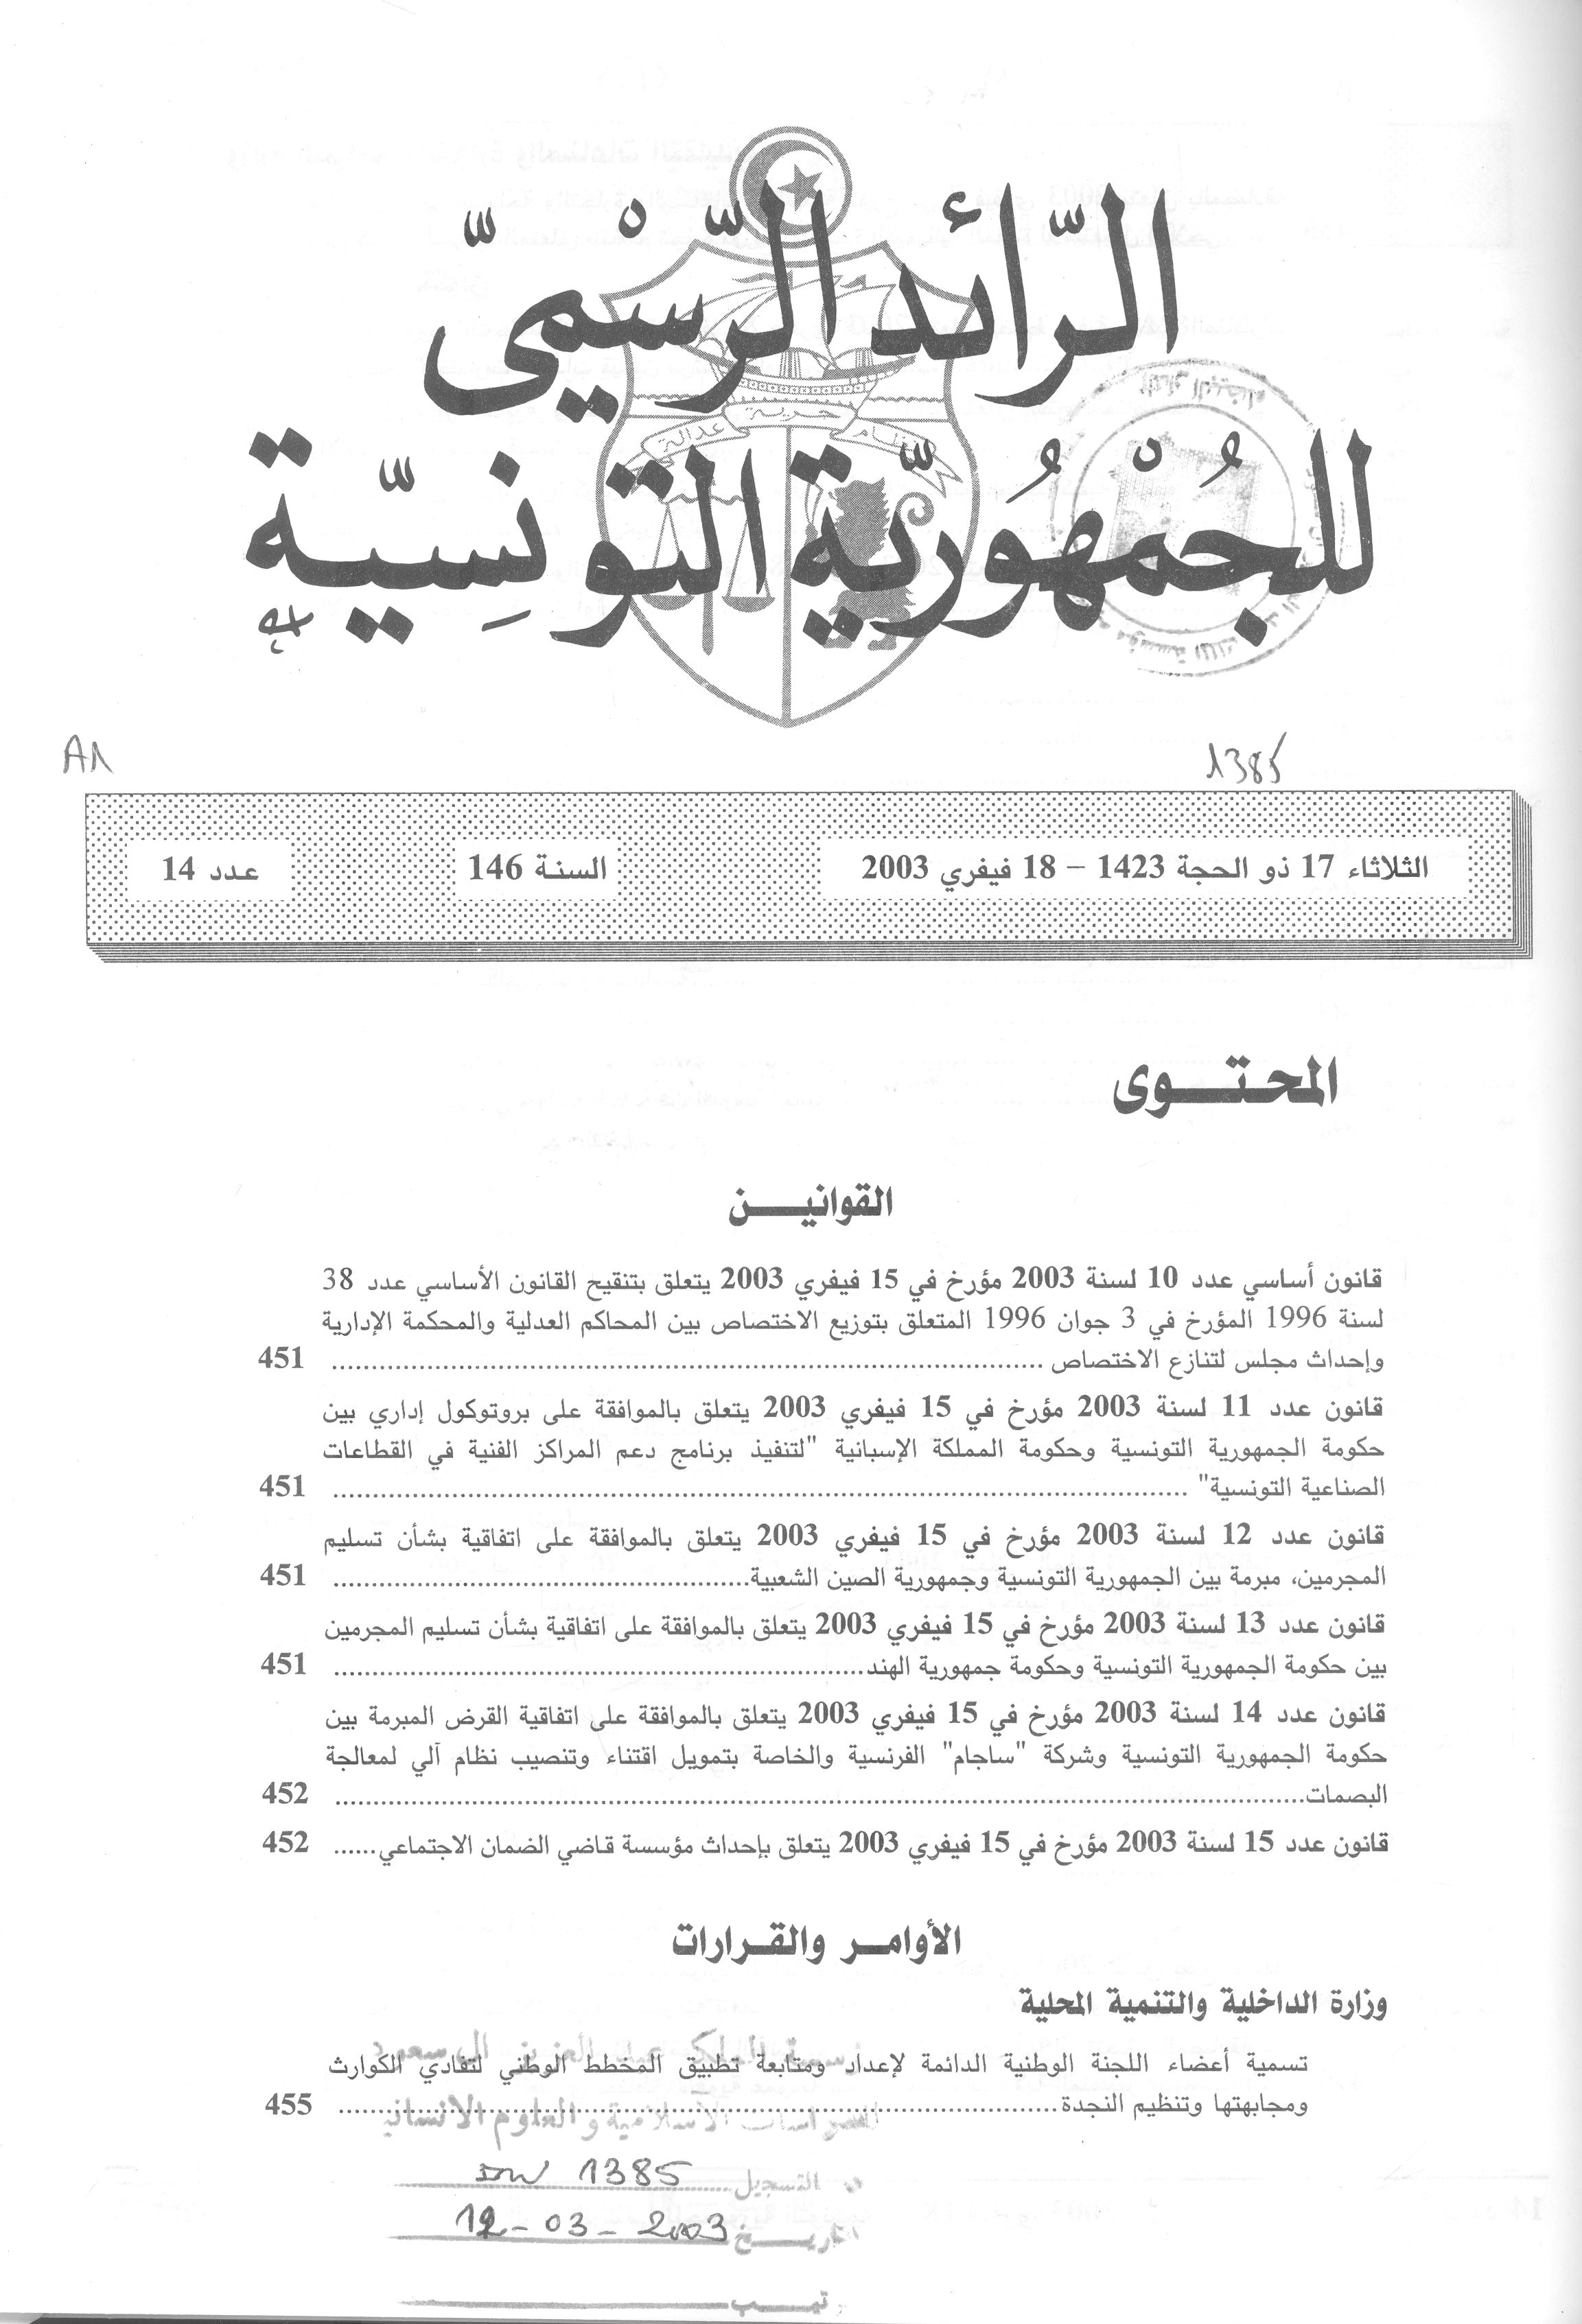 الرّائد الرّسْميّ
للجُمْهُوريّة التونِسيّة
نظام حرية عدالة
A1
1385
الثلاثاء 17 ذو الحجة 1423 – 18 فيفري 2003
السنة 146
عدد 14
المحتوى
القوانين
قانون أساسي عدد 10 لسنة 2003 مؤرخ في 15 فيفري 2003 يتعلق بتنقيح القانون الأساسي عدد 38
لسنة 1996 المؤرخ في 3 جوان 1996 المتعلق بتوزيع الاختصاص بين المحاكم العدلية والمحكمة الإدارية
وإحداث مجلس لتنازع الاختصاص .......... 451
قانون عدد 11 لسنة 2003 مؤرخ في 15 فيفري 2003 يتعلق بالموافقة على بروتوكول إداري بين
حكومة الجمهورية التونسية وحكومة المملكة الإسبانية "لتنفيذ برنامج دعم المراكز الفنية في القطاعات
الصناعية التونسية" .......... 451
قانون عدد 12 لسنة 2003 مؤرخ في 15 فيفري 2003 يتعلق بالموافقة على اتفاقية بشأن تسليم
المجرمين، مبرمة بين الجمهورية التونسية وجمهورية الصين الشعبية.......... 451
قانون عدد 13 لسنة 2003 مؤرخ في 15 فيفري 2003 يتعلق بالموافقة على اتفاقية بشأن تسليم المجرمين
بين حكومة الجمهورية التونسية وحكومة جمهورية الهند.......... 451
قانون عدد 14 لسنة 2003 مؤرخ في 15 فيفري 2003 يتعلق بالموافقة على اتفاقية القرض المبرمة بين
حكومة الجمهورية التونسية وشركة "ساجام" الفرنسية والخاصة بتمويل اقتناء وتنصيب نظام آلي لمعالجة
البصمات.......... 452
قانون عدد 15 لسنة 2003 مؤرخ في 15 فيفري 2003 يتعلق بإحداث مؤسسة قاضي الضمان الاجتماعي...... 452
الأوامر والقرارات
وزارة الداخلية والتنمية المحلية
تسمية أعضاء اللجنة الوطنية الدائمة لإعداد ومتابعة تطبيق المخطط الوطني لتفادي الكوارث
ومجابهتها وتنظيم النجدة.......... 455
الإسلامية والعلوم الانسانية
التسجيل 1385
12-03-2003